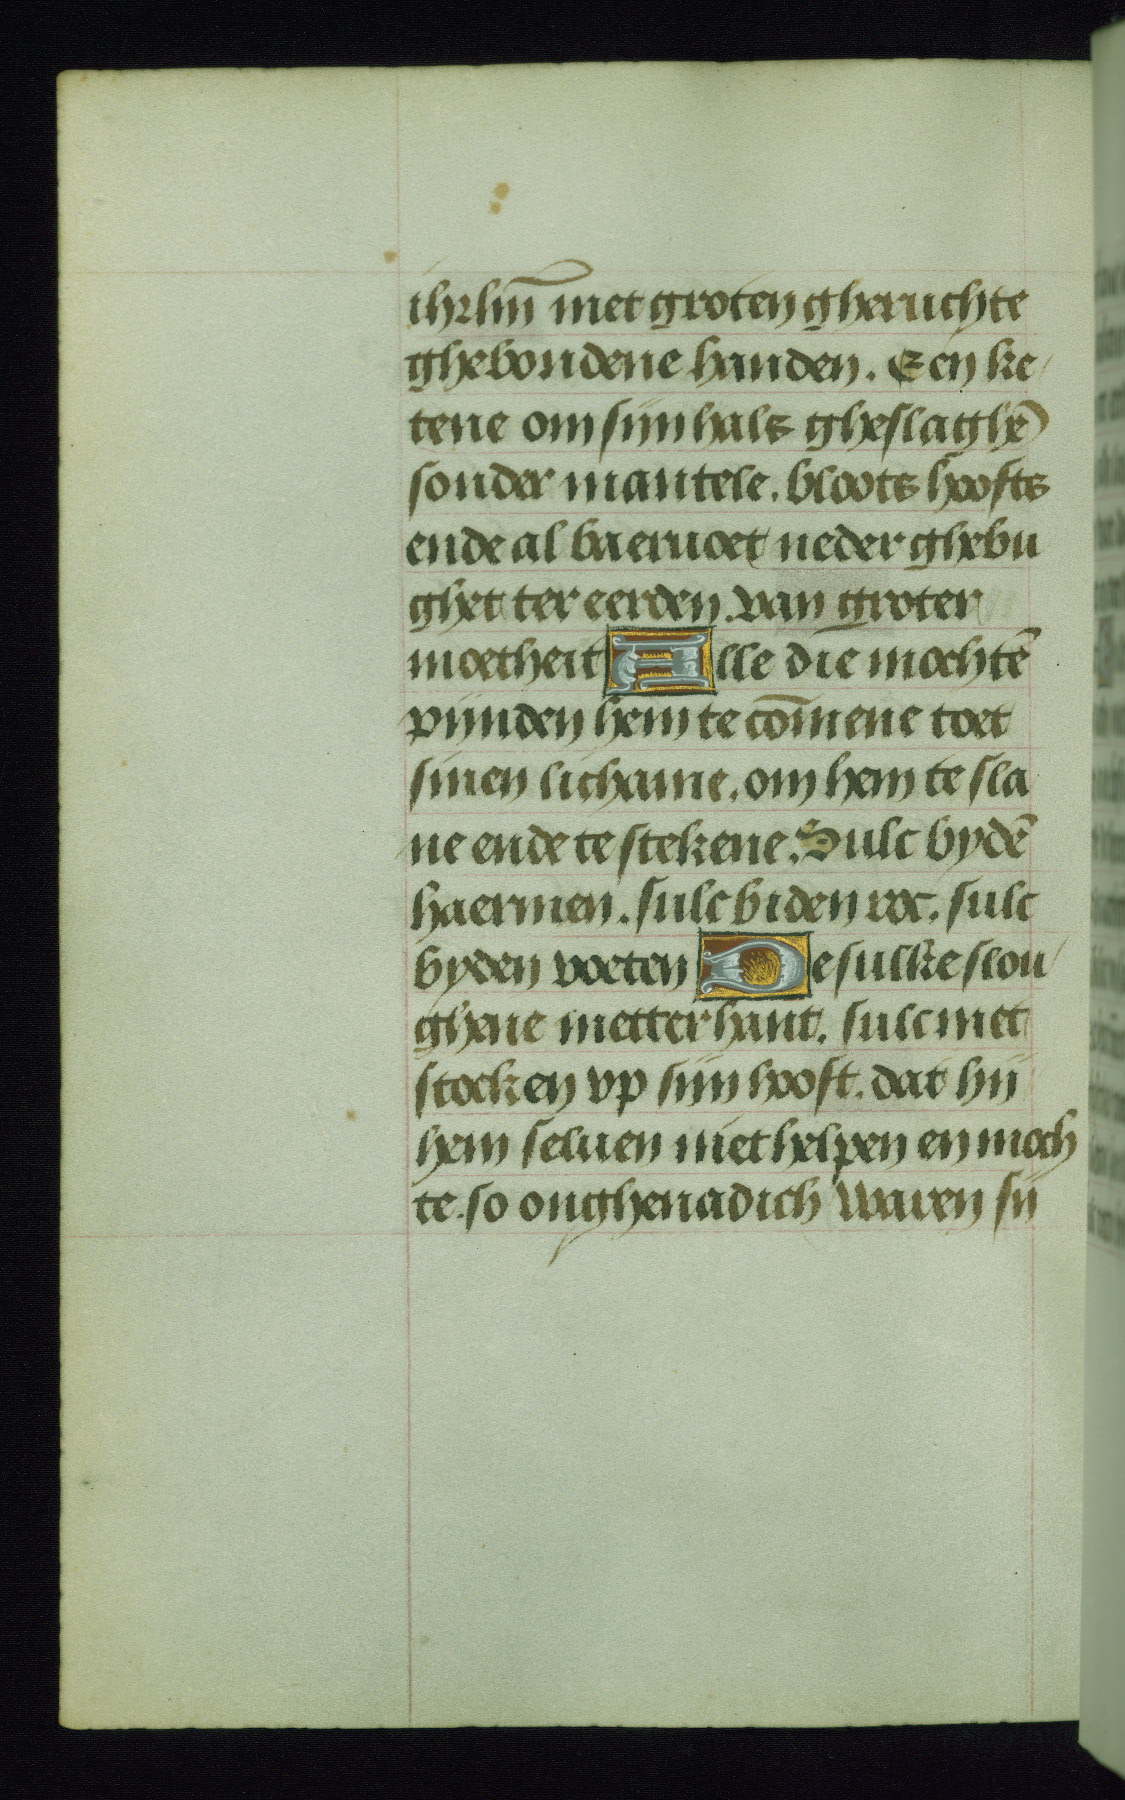 ihrlm̄ met groten gheruchte
ghebondene handen. Een ke
tene om sijn hals gheslaghē
sonder mantele. bloots hoofts
ende al baeruoet neder ghebu
ghet ter eerden. van groter
moetheit Alle die mochtē
pijnden hem te cōmene toet
sinen lichame. om hem te sla
ne ende te stekene. Sulc bydē
haermen. sulc biden roc. sulc
byden voeten De sulke slou
ghene metter hant. sulc met
stocken vp sijn hooft. dat hij
hem seluen niet helpen en moch
te. so onghenadich waren sij